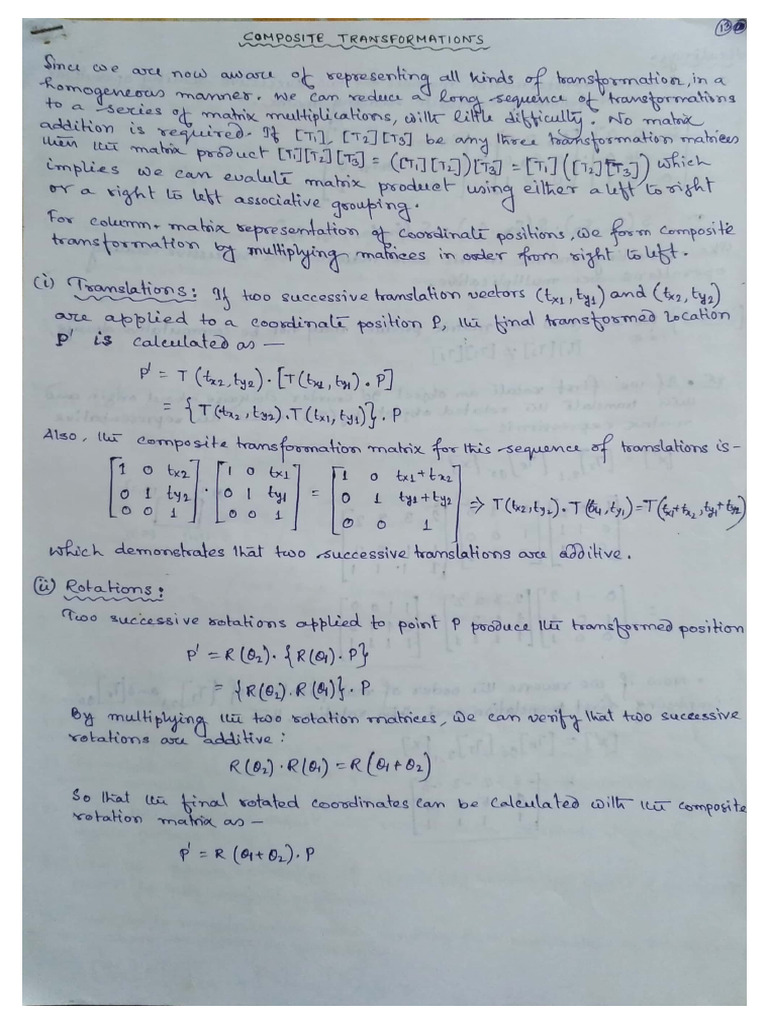 13
COMPOSITE TRANSFORMATIONS
Since we are now aware of representing all kinds of transformation, in a
homogeneous manner. We can reduce a long sequence of transformations
to a series of matrix multiplications, with little difficulty. No matrix
addition is required. If [T1], [T2] [T3] be any three transformation matrices
then the matrix product [T1][T2][T3] = ([T1][T2])[T3] = [T1]([T2][T3]) which
implies we can evalute matrix product using either a left to right
or a right to left associative grouping.
For column-matrix representation of coordinate positions, we form composite
transformation by multiplying matrices in order from right to left.
(i) Translations: If two successive translation vectors (tx1, ty1) and (tx2, ty2)
are applied to a coordinate position P, the final transformed location
P' is calculated as —
P' = T(tx2, ty2) · [T(tx1, ty1) · P]
= {T(tx2, ty2) · T(tx1, ty1)} · P
Also, the composite transformation matrix for this sequence of translations is -
[1 0 tx2] [1 0 tx1] [1 0 tx1+tx2]
[0 1 ty2] · [0 1 ty1] = [0 1 ty1+ty2] ⇒ T(tx2, ty2) · T(tx1, ty1) = T(tx1+tx2, ty1+ty2)
[0 0 1] [0 0 1] [0 0 1]
which demonstrates that two successive translations are additive.
(ii) Rotations:
Two successive rotations applied to point P produce the transformed position
P' = R(θ2) · {R(θ1) · P}
= {R(θ2) · R(θ1)} · P
By multiplying the two rotation matrices, we can verify that two successive
rotations are additive:
R(θ2) · R(θ1) = R(θ1+θ2)
So that the final rotated coordinates can be calculated with the composite
rotation matrix as —
P' = R(θ1+θ2) · P